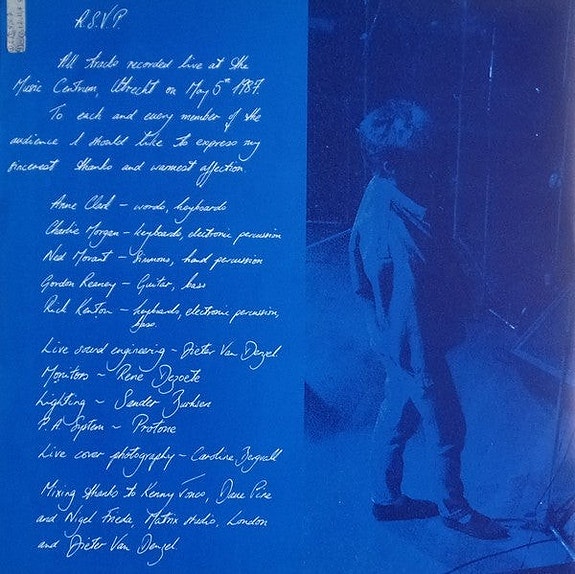 R.S.V.P.
All tracks recorded live at the
Music Centrum, Utrecht on May 5th 1987.
To each and every member of the
audience I should like to express my
sincerest thanks and warmest affection.
Anne Clark – words, keyboards
Charlie Morgan – keyboards, electronic percussion
Ned Morant – Simmons, hand percussion
Gordon Reaney – Guitar, bass
Rick Kenton – keyboards, electronic percussion,
bass.
Live sound engineering – Dieter Van Denzel
Monitors – Rene Dezoete
Lighting – Sander
P.A System – Protone
Live cover photography – Caroline Bergvall
Mixing thanks to Kenny Jones, Dave Pine
and Nigel Frieda, Matrix studio, London
and Dieter Van Denzel.